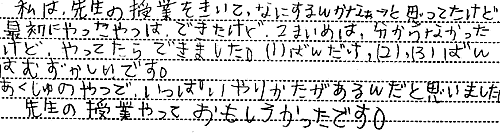 私は、先生の授業をきいて、なにするんかなぁっと思ってたけど、
最初にやったやつは、できたけど、2まいめは、分からなかった
けど、やってたらできました。(1)ばんだけ、(2),(3)ばん
はむずかしいです。
あくしゅのやつで、いっぱいやりかたがあるんだと思いました
先生の授業やっておもしろかったです。